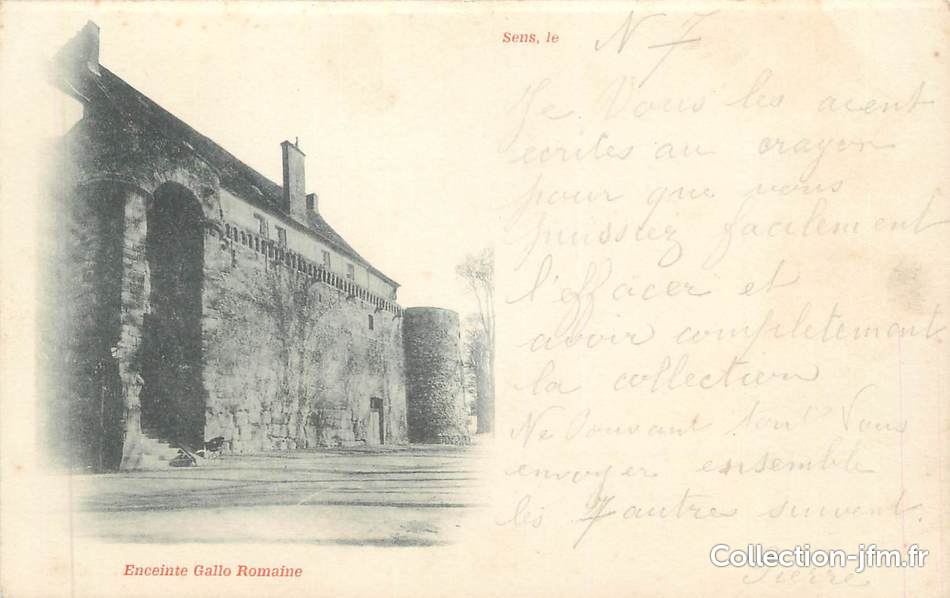 Sens, le
N 7
Je Vous les
ecrites au crayon
pour que vous
puissiez facilement
l'effacer et
avoir completement
la collection
Ne Pouvant Vous
envoyer ensemble
les 7 autres suivent.
Pierre
Enceinte Gallo Romaine
Collection-jfm.fr